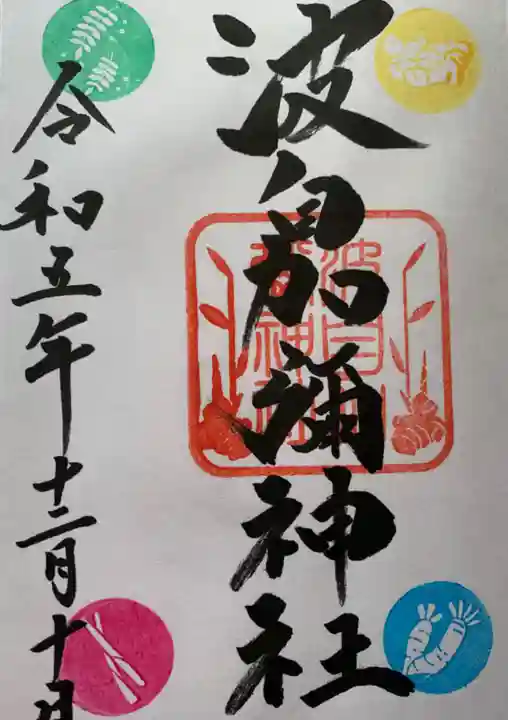 波自加彌神社
令和五年十二月十日